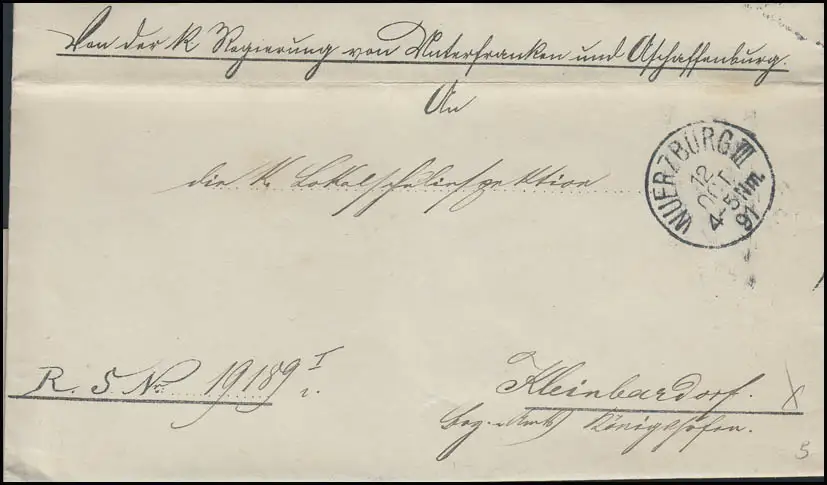 Von der K Regierung von Unterfranken und Aschaffenburg.
An
die K. Lokalschulinspektion
WUERZBURG III
12
OKT.
4-5 Nm.
91
R. S No. 19189 I
i.
Kleinbardorf.
Bez. Amts Königshofen.
X
5